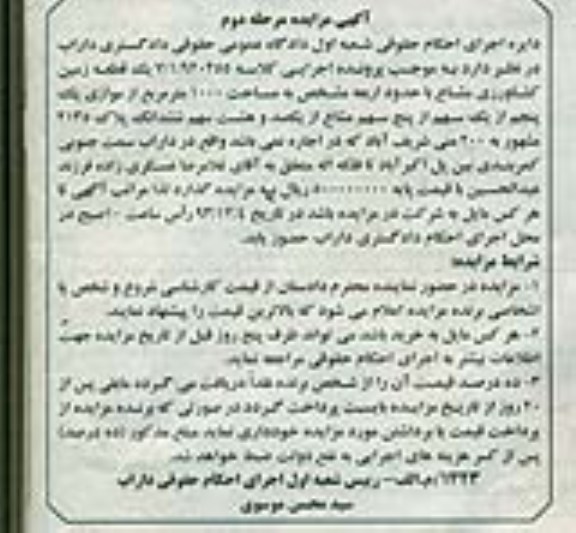 آگهی مزایده مرحله دوم
دایره اجرای احکام حقوقی شعبه اول دادگاه عمومی حقوقی دادگستری داراب
در نظر دارد به موجب پرونده اجرایی کلاسه یک قطعه زمین
کشاورزی مشاع با حدود اربعه مشخص به مساحت ۱۰۰۰ مترمربع از موازی یک
پنجم از یک سهم از پنج سهم مشاع از یکصد و هشت سهم ششدانگ پلاک ۲۱۳۵
مشهور به شریف آباد که در اجاره نمی باشد واقع در داراب سمت جنوبی
کمربندی بین پل اکبرآباد تا فلکه متعلق به آقای غلامرضا عسکری زاده فرزند
عبدالحسین با قیمت پایه ریال به مزایده گذارد لذا مراتب آگهی تا
هر کس مایل به شرکت در مزایده باشد در تاریخ ۹۳/۱۲/۴ رأس ساعت ۱۰صبح در
محل اجرای احکام دادگستری داراب حضور یابد.
شرایط مزایده:
۱- مزایده در حضور نماینده محترم دادستان از قیمت کارشناسی شروع و شخص یا
اشخاصی برنده مزایده اعلام می شود که بالاترین قیمت را پیشنهاد نمایند.
۲- هر کس مایل به خرید باشد می تواند ظرف پنج روز قبل از تاریخ مزایده جهت
اطلاعات بیشتر به اجرای احکام حقوقی مراجعه نماید.
۳- ده درصد قیمت آن را از شخص برنده نقداً دریافت می گردد مابقی پس از
۲۰ روز از تاریخ مزایده بایست پرداخت گردد در صورتی که برنده مزایده از
پرداخت قیمت یا برداشتن مورد مزایده خودداری نماید مبلغ مذکور (ده درصد)
پس از کسر هزینه های اجرایی به نفع دولت ضبط خواهد شد.
۱۳۲۳/م‌الف- رییس شعبه اول اجرای احکام حقوقی داراب
سید محسن موسوی